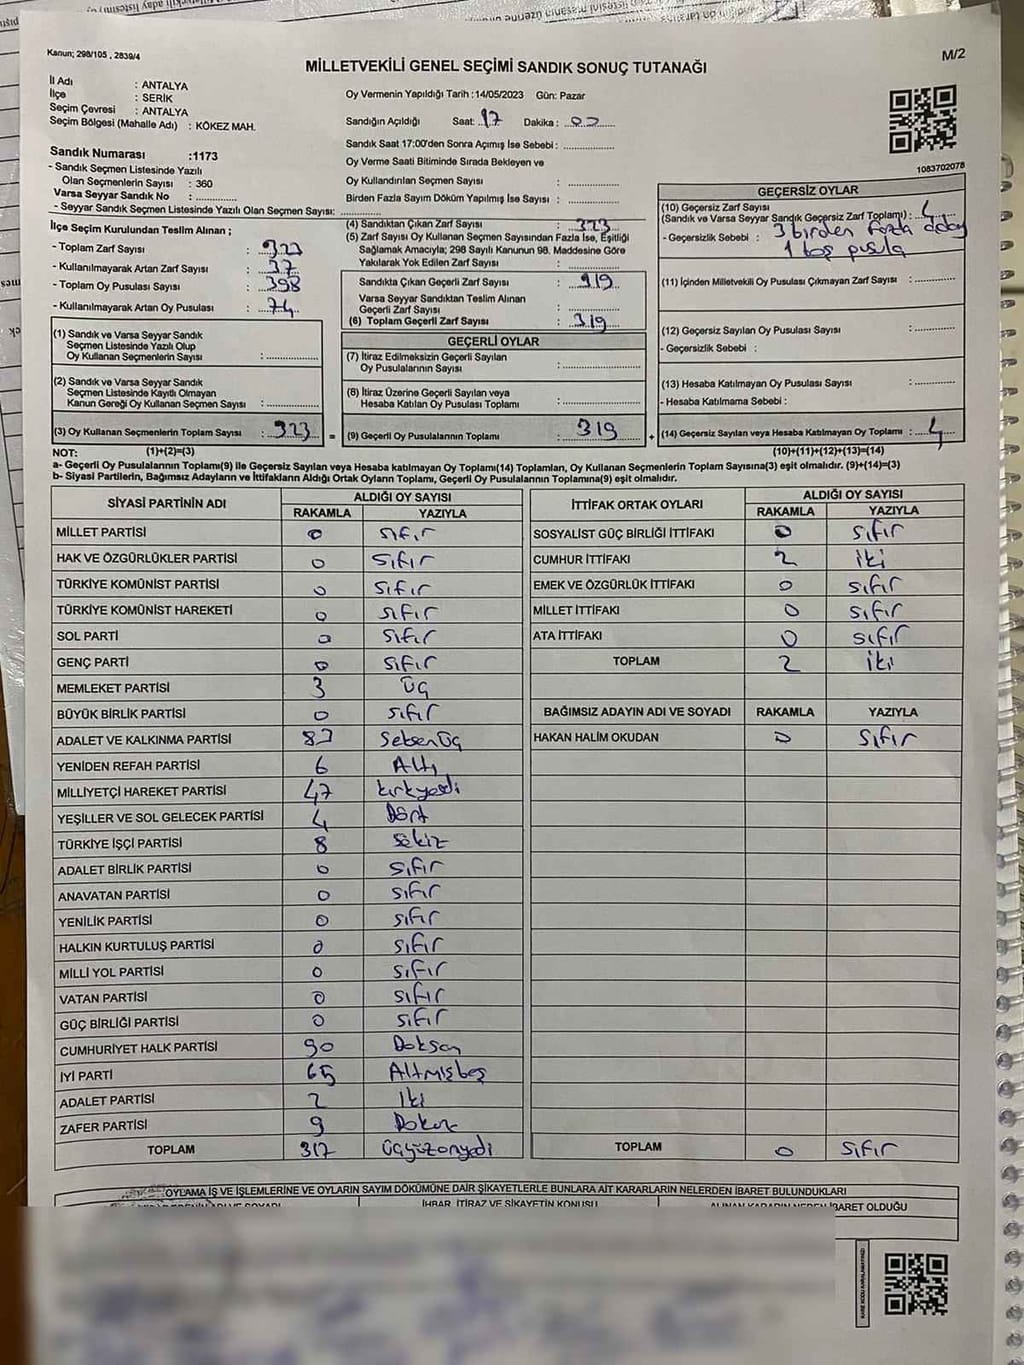 Kanun; 298/105 , 2839/4
M/2
MİLLETVEKİLİ GENEL SEÇİMİ SANDIK SONUÇ TUTANAĞI
İl Adı : ANTALYA
İlçe : SERİK
Seçim Çevresi : ANTALYA
Seçim Bölgesi (Mahalle Adı) : KÖKEZ MAH.
Sandık Numarası :1173
- Sandık Seçmen Listesinde Yazılı
Olan Seçmenlerin Sayısı : 360
Varsa Seyyar Sandık No :
- Seyyar Sandık Seçmen Listesinde Yazılı Olan Seçmen Sayısı:
Oy Vermenin Yapıldığı Tarih :14/05/2023 Gün: Pazar
Sandığın Açıldığı Saat: 17 Dakika : 00
Sandık Saat 17:00'den Sonra Açımış İse Sebebi :
Oy Verme Saati Bitiminde Sırada Bekleyen ve
Oy Kullandırılan Seçmen Sayısı :
Birden Fazla Sayım Döküm Yapılmış İse Sayısı :
1083702078
İlçe Seçim Kurulundan Teslim Alınan ;
- Toplam Zarf Sayısı : 323
- Kullanılmayarak Artan Zarf Sayısı : 37
- Toplam Oy Pusulası Sayısı : 398
- Kullanılmayarak Artan Oy Pusulası : 74
(1) Sandık ve Varsa Seyyar Sandık
Seçmen Listesinde Yazılı Olup
Oy Kullanan Seçmenlerin Sayısı :
(2) Sandık ve Varsa Seyyar Sandık
Seçmen Listesinde Kayıtlı Olmayan
Kanun Gereği Oy Kullanan Seçmen Sayısı :
(3) Oy Kullanan Seçmenlerin Toplam Sayısı : 323 =
(4) Sandıktan Çıkan Zarf Sayısı : 323
(5) Zarf Sayısı Oy Kullanan Seçmen Sayısından Fazla İse, Eşitliği
Sağlamak Amacıyla; 298 Sayılı Kanunun 98. Maddesine Göre
Yakılarak Yok Edilen Zarf Sayısı :
Sandıkta Çıkan Geçerli Zarf Sayısı : 319
Varsa Seyyar Sandıktan Teslim Alınan
Geçerli Zarf Sayısı :
(6) Toplam Geçerli Zarf Sayısı : 319
GEÇERLİ OYLAR
(7) İtiraz Edilmeksizin Geçerli Sayılan
Oy Pusulalarının Sayısı :
(8) İtiraz Üzerine Geçerli Sayılan veya
Hesaba Katılan Oy Pusulası Toplamı :
(9) Geçerli Oy Pusulalarının Toplamı : 319 +
GEÇERSİZ OYLAR
(10) Geçersiz Zarf Sayısı
(Sandık ve Varsa Seyyar Sandık Geçersiz Zarf Toplamı) : 4
- Geçersizlik Sebebi : 3 birden fazla aday
1 boş pusula
(11) İçinden Milletvekili Oy Pusulası Çıkmayan Zarf Sayısı :
(12) Geçersiz Sayılan Oy Pusulası Sayısı :
- Geçersizlik Sebebi :
(13) Hesaba Katılmayan Oy Pusulası Sayısı :
- Hesaba Katılmama Sebebi :
(14) Geçersiz Sayılan veya Hesaba Katılmayan Oy Toplamı : 4
NOT: (1)+(2)=(3) (10)+(11)+(12)+(13)=(14)
a- Geçerli Oy Pusulalarının Toplamı(9) ile Geçersiz Sayılan veya Hesaba katılmayan Oy Toplamı(14) Toplamları, Oy Kullanan Seçmenlerin Toplam Sayısına(3) eşit olmalıdır. (9)+(14)=(3)
b- Siyasi Partilerin, Bağımsız Adayların ve İttifakların Aldığı Ortak Oyların Toplamı, Geçerli Oy Pusulalarının Toplamına(9) eşit olmalıdır.
SİYASİ PARTİNİN ADI ALDIĞI OY SAYISI
RAKAMLA YAZIYLA
MİLLET PARTİSİ 0 sıfır
HAK VE ÖZGÜRLÜKLER PARTİSİ 0 sıfır
TÜRKİYE KOMÜNİST PARTİSİ 0 sıfır
TÜRKİYE KOMÜNİST HAREKETİ 0 sıfır
SOL PARTİ 0 sıfır
GENÇ PARTİ 0 sıfır
MEMLEKET PARTİSİ 3 üç
BÜYÜK BİRLİK PARTİSİ 0 sıfır
ADALET VE KALKINMA PARTİSİ 83 Seksenüç
YENİDEN REFAH PARTİSİ 6 Altı
MİLLİYETÇİ HAREKET PARTİSİ 47 kırkyedi
YEŞİLLER VE SOL GELECEK PARTİSİ 4 Dört
TÜRKİYE İŞÇİ PARTİSİ 8 sekiz
ADALET BİRLİK PARTİSİ 0 sıfır
ANAVATAN PARTİSİ 0 sıfır
YENİLİK PARTİSİ 0 sıfır
HALKIN KURTULUŞ PARTİSİ 0 sıfır
MİLLİ YOL PARTİSİ 0 sıfır
VATAN PARTİSİ 0 sıfır
GÜÇ BİRLİĞİ PARTİSİ 0 sıfır
CUMHURİYET HALK PARTİSİ 90 Doksan
İYİ PARTİ 65 Altmışbeş
ADALET PARTİSİ 2 İki
ZAFER PARTİSİ 9 Dokuz
TOPLAM 317 üçyüzonyedi
İTTİFAK ORTAK OYLARI ALDIĞI OY SAYISI
RAKAMLA YAZIYLA
SOSYALİST GÜÇ BİRLİĞİ İTTİFAKI 0 sıfır
CUMHUR İTTİFAKI 2 iki
EMEK VE ÖZGÜRLÜK İTTİFAKI 0 sıfır
MİLLET İTTİFAKI 0 sıfır
ATA İTTİFAKI 0 sıfır
TOPLAM 2 iki
BAĞIMSIZ ADAYIN ADI VE SOYADI RAKAMLA YAZIYLA
HAKAN HALİM OKUDAN 0 sıfır
TOPLAM 0 sıfır
OYLAMA İŞ VE İŞLEMLERİNE VE OYLARIN SAYIM DÖKÜMÜNE DAİR ŞİKAYETLERLE BUNLARA AİT KARARLARIN NELERDEN İBARET BULUNDUKLARI
İHBAR, İTİRAZ VE ŞİKAYETİN KONUSU
ALINAN KARARIN NEDEN İBARET OLDUĞU